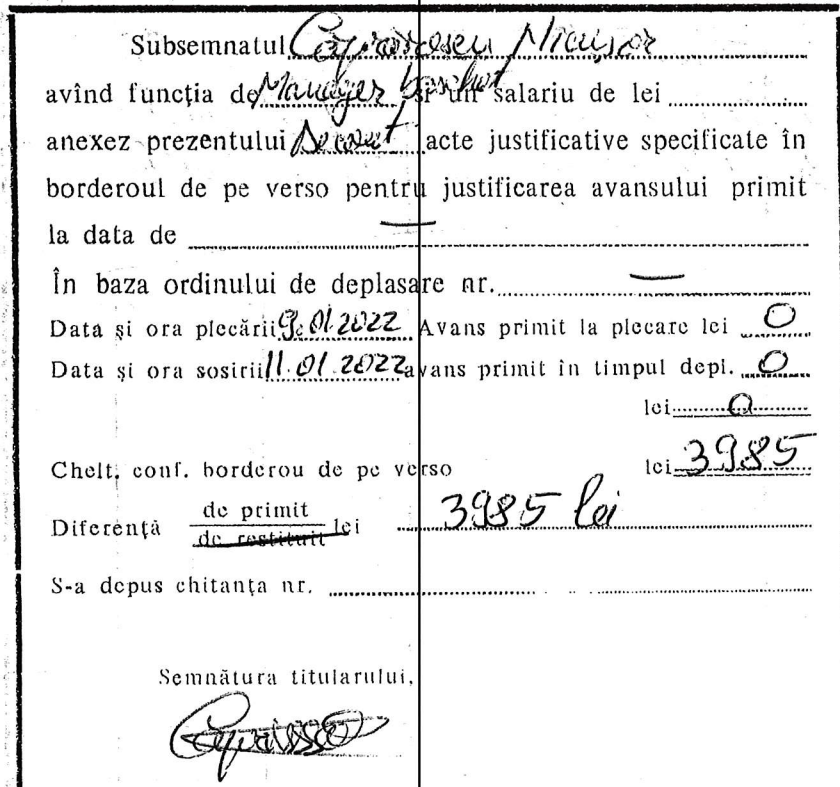 Subsemnatul Nicușor
avînd funcția de Manager și un salariu de lei
anexez prezentului Decont acte justificative specificate în
borderoul de pe verso pentru justificarea avansului primit
la data de —
În baza ordinului de deplasare nr. —
Data și ora plecării 9.01.2022 Avans primit la plecare lei 0
Data și ora sosirii 11.01.2022 avans primit în timpul depl. 0
lei 0
Chelt. conf. borderou de pe verso lei 3985
Diferență de primit
de restituit lei 3985 lei
S-a depus chitanța nr.
Semnătura titularului,